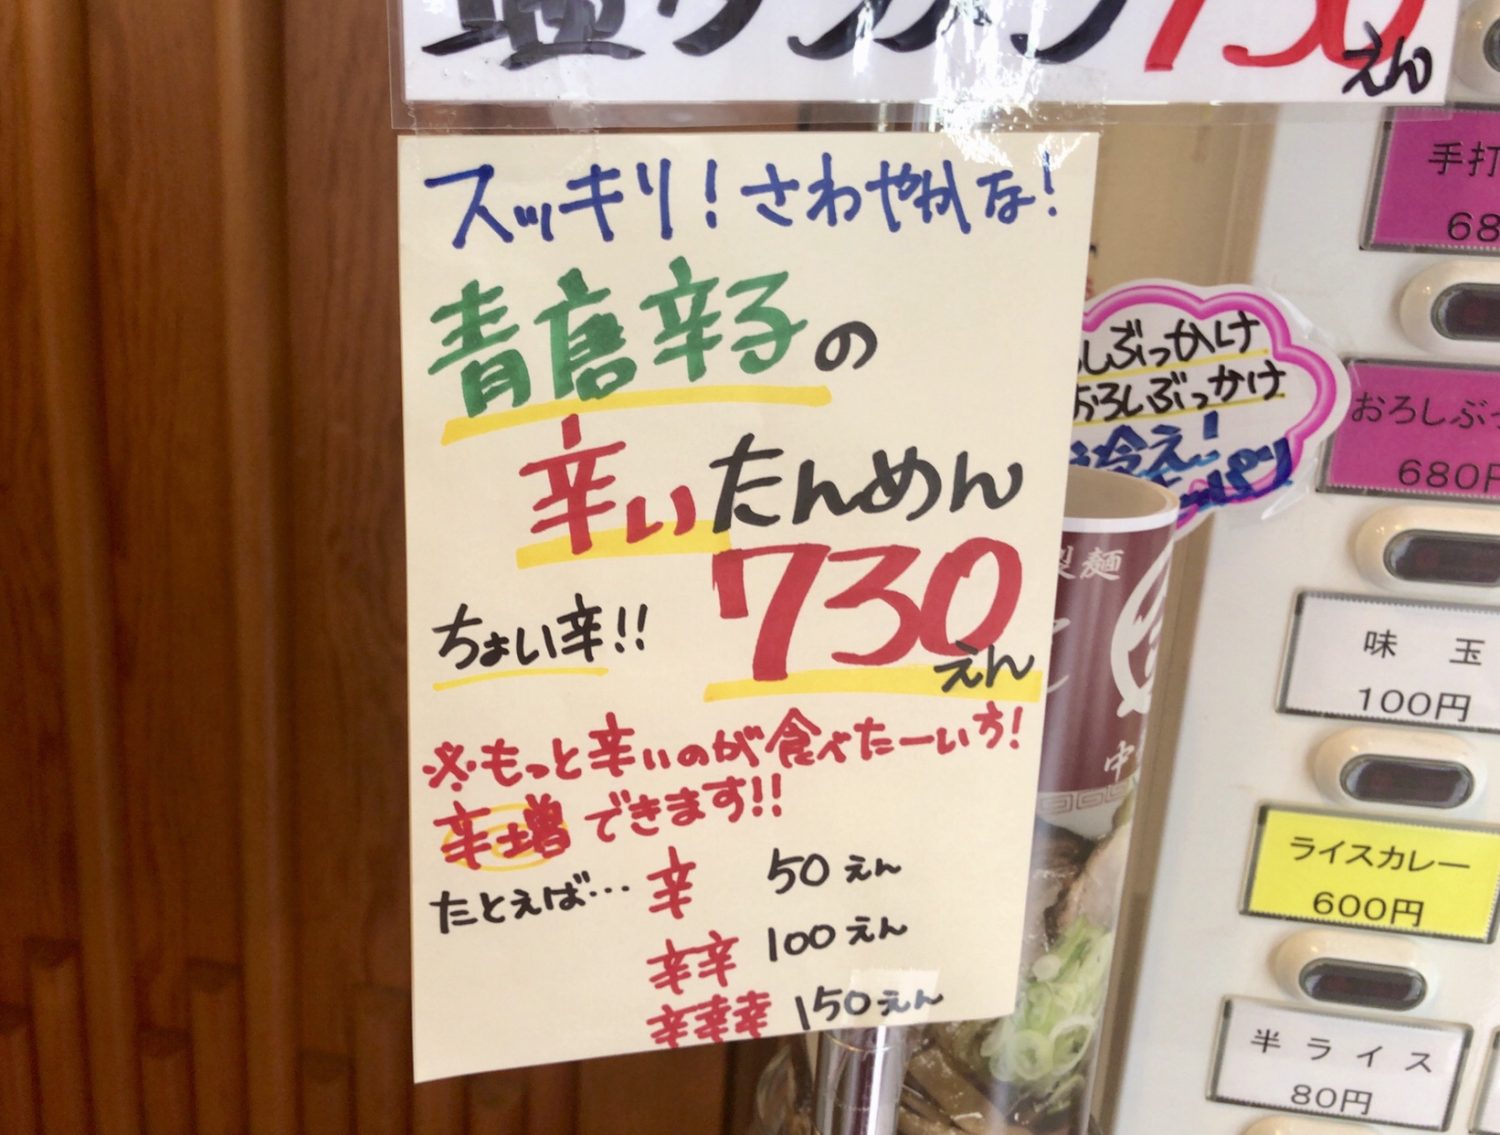 730
えん
スッキリ！さわやかな！
青唐辛子の
辛いたんめん
730
えん
ちょい辛!!
※もっと辛いのが食べたーい方！
辛増できます!!
たとえば… 辛 50えん
辛辛 100えん
辛辛辛 150えん
しぶっかけ
おろしぶっかけ
冷え！
製麺
手打
68
おろしぶっ
680円
味玉
100円
ライスカレー
600円
半ライス
80円